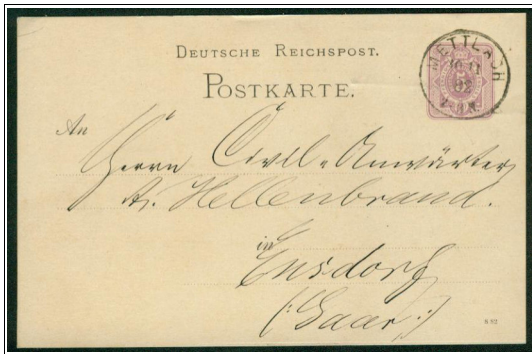 DEUTSCHE REICHSPOST.
POSTKARTE.
METTLACH
10 11
82
An
Herrn Civil-Anwärter
Hellenbrand.
in
Ensdorf
(:Saar:)